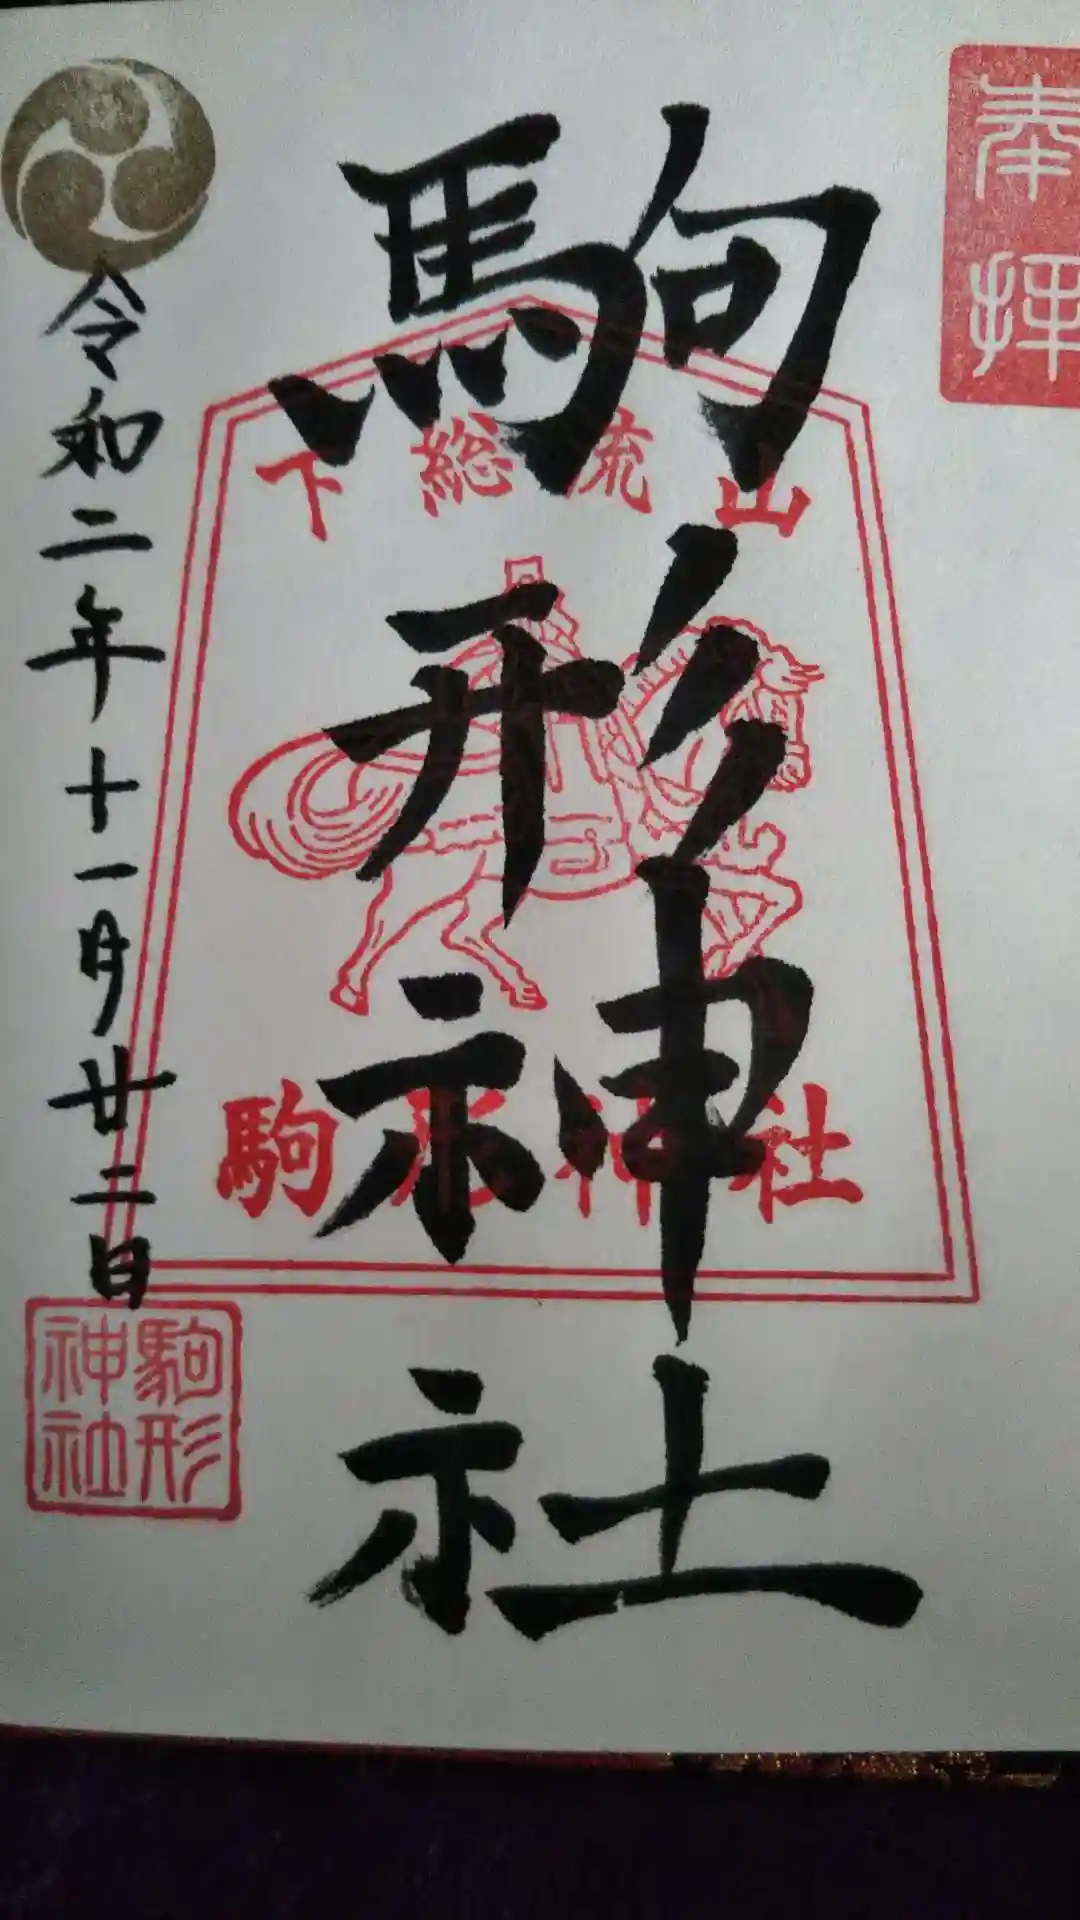 奉拝
駒形神社
下総流山
駒形神社
令和二年十一月廿二日
駒形
神社